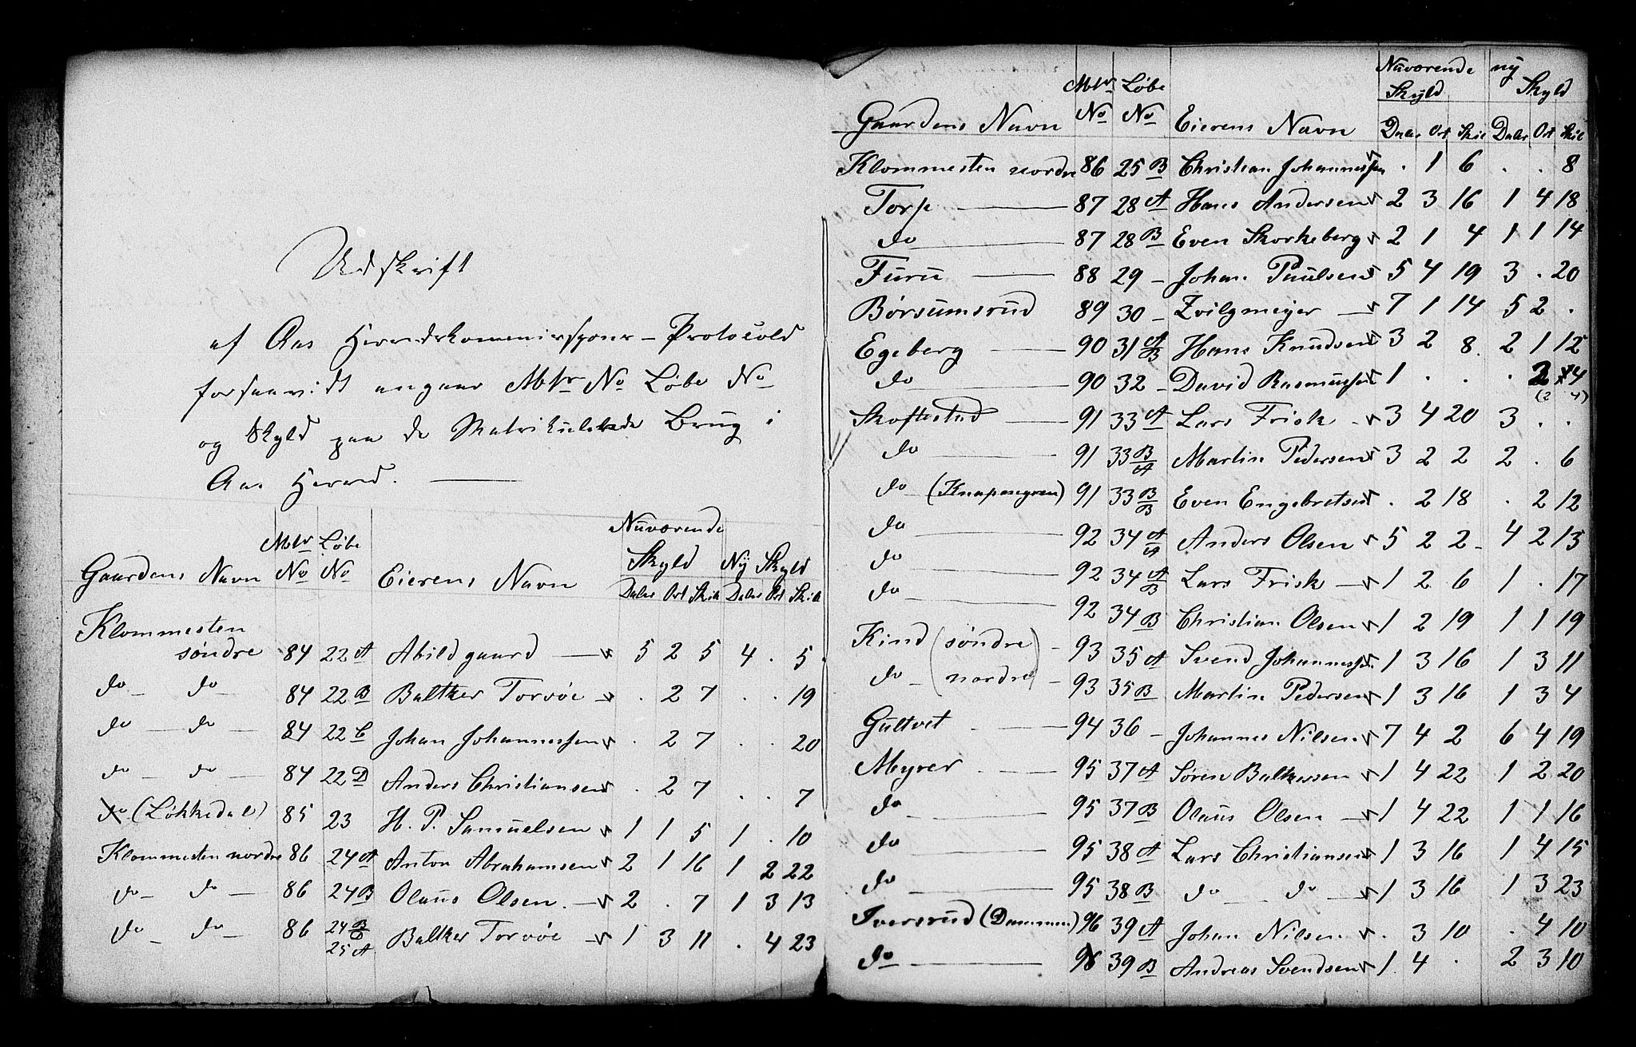 Udskrift
af Aas Herredskommissions-Protocol
forsaavidt angaar Mtr No Løbe No
og Skyld paa de Matrikulerede Brug i
Aas Herred.
Gaardens Navn Mtr No Løbe No Eierens Navn Nuværende Skyld Ny Skyld
Daler Ort Skil Daler Ort Skil
Klommesten
søndre 84 22 A Abildgaard 5 2 5 4 . 5
do do 84 22 B Baltzer Torvöe . 2 7 . . 19
do do 84 22 C Johan Johannessen . 2 7 . . 20
do do 84 22 D Anders Christiansen . 2 7 . . 7
do (Løkkedal) 85 23 H. P. Samuelsen 1 1 5 1 . 10
Klommesten nordre 86 24 A Anton Abrahamsen 2 1 16 1 2 22
do do 86 24 B Olaus Olsen 2 . 7 1 3 13
do do 86 24 25 A Baltzer Torvöe 1 3 11 . 4 23
Gaardens Navn Mtr No Løbe No Eierens Navn Nuværende Skyld ny Skyld
Daler Ort Skil Daler Ort Skil
Klommesten nordre 86 25 B Christian Johannessen . 1 6 . . 8
Torp 87 28 A Hans Andersen 2 3 16 1 4 18
do 87 28 B Even Skorkeberg 2 1 4 1 1 14
Furu 88 29 - Johan Paulsen 5 4 19 3 . 20
Børsumsrud 89 30 - Zvilgmeyer 7 1 14 5 2 .
Egeberg 90 31 A/B Hans Knudsen 3 2 8 2 1 12
do 90 32 - David Rasmussen 1 . . . 2 4
(2 4)
Skoftestad 91 33 A Lars Frisk 3 4 20 3 . .
do 91 33 B/A Martin Pedersen 3 2 2 2 . 6
do (Knapengren) 91 33 B/B Even Engebretsen . 2 18 . 2 12
do 92 34 A/A Anders Olsen 5 2 2 4 2 13
do 92 34 A/B Lars Frisk 1 2 6 1 . 17
do 92 34 B Christian Olsen 1 2 19 1 1 19
Kind (søndre) 93 35 A Svend Johannessen 1 3 16 1 3 11
do (nordre) 93 35 B Martin Pedersen 1 3 16 1 3 4
Gultvet 94 36 - Johannes Nilsen 7 4 2 6 4 19
Myrer 95 37 A Søren Baltzersen 1 4 22 1 2 20
do 95 37 B Olaus Olsen 1 4 22 1 1 16
do 95 38 A Lars Christiansen 1 3 16 1 4 15
do 95 38 B do do 1 3 16 1 3 23
Iversrud (Dammen) 96 39 A Johan Nilsen . 3 10 . 4 10
do 96 39 B Andreas Svendsen 1 4 . 2 3 10